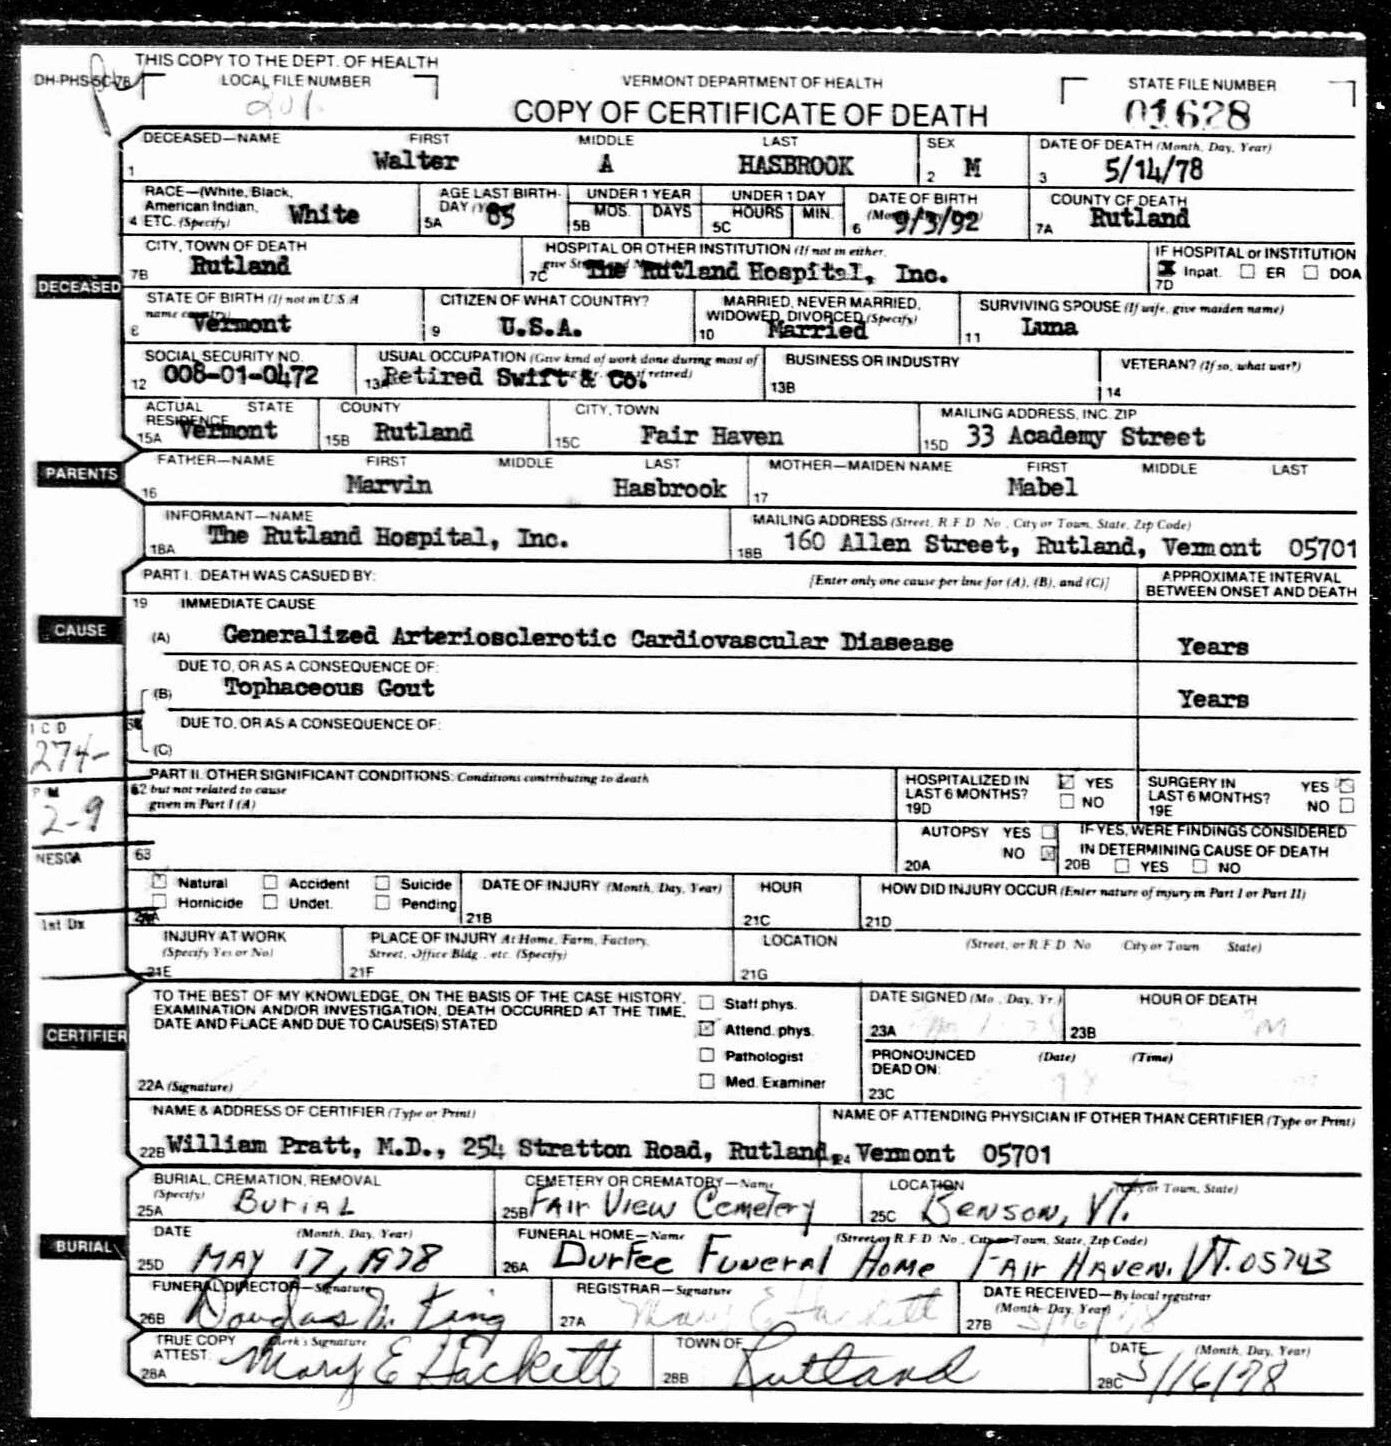 THIS COPY TO THE DEPT. OF HEALTH
DH-PHS-5C-78 LOCAL FILE NUMBER VERMONT DEPARTMENT OF HEALTH STATE FILE NUMBER
201 COPY OF CERTIFICATE OF DEATH 01628
DECEASED—NAME FIRST MIDDLE LAST SEX DATE OF DEATH (Month, Day, Year)
1 Walter A HASBROOK 2 M 3 5/14/78
RACE—(White, Black, AGE LAST BIRTH- UNDER 1 YEAR UNDER 1 DAY DATE OF BIRTH COUNTY OF DEATH
American Indian,
4 ETC. (Specify) White 5A DAY 85 5B MOS. DAYS 5C HOURS MIN. 6 9/3/92 7A Rutland
CITY, TOWN OF DEATH HOSPITAL OR OTHER INSTITUTION (If not in either, IF HOSPITAL or INSTITUTION
7B Rutland 7C The Rutland Hospital, Inc. 7D Inpat. ER DOA
DECEASED
STATE OF BIRTH (If not in U.S.A CITIZEN OF WHAT COUNTRY? MARRIED, NEVER MARRIED, SURVIVING SPOUSE (If wife, give maiden name)
name country) WIDOWED, DIVORCED (Specify)
8 Vermont 9 U.S.A. 10 Married 11 Luna
SOCIAL SECURITY NO. USUAL OCCUPATION (Give kind of work done during most of BUSINESS OR INDUSTRY VETERAN? (If so, what war?)
12 008-01-0472 13A Retired Swift & Co. if retired) 13B 14
ACTUAL STATE COUNTY CITY, TOWN MAILING ADDRESS, INC. ZIP
RESIDENCE
15A Vermont 15B Rutland 15C Fair Haven 15D 33 Academy Street
PARENTS
FATHER—NAME FIRST MIDDLE LAST MOTHER—MAIDEN NAME FIRST MIDDLE LAST
16 Marvin Hasbrook 17 Mabel
INFORMANT—NAME MAILING ADDRESS (Street, R.F.D. No., City or Town, State, Zip Code)
18A The Rutland Hospital, Inc. 18B 160 Allen Street, Rutland, Vermont 05701
PART I. DEATH WAS CASUED BY: [Enter only one cause per line for (A), (B), and (C)] APPROXIMATE INTERVAL
BETWEEN ONSET AND DEATH
19 IMMEDIATE CAUSE
CAUSE
(A) Generalized Arteriosclerotic Cardiovascular Diasease Years
DUE TO, OR AS A CONSEQUENCE OF:
(B) Tophaceous Gout Years
DUE TO, OR AS A CONSEQUENCE OF:
(C)
I C D
274-
PART II. OTHER SIGNIFICANT CONDITIONS: Conditions contributing to death HOSPITALIZED IN YES SURGERY IN YES
62 but not related to cause LAST 6 MONTHS? NO LAST 6 MONTHS? NO
given in Part I (A) 19D 19E
2-9
AUTOPSY YES IF YES, WERE FINDINGS CONSIDERED
NO IN DETERMINING CAUSE OF DEATH
NESCA 63 20A 20B YES NO
Natural Accident Suicide DATE OF INJURY (Month, Day, Year) HOUR HOW DID INJURY OCCUR (Enter nature of injury in Part I or Part II)
Homicide Undet. Pending
21A 21B 21C 21D
1st Dx
INJURY AT WORK PLACE OF INJURY At Home, Farm, Factory, LOCATION (Street, or R.F.D. No City or Town State)
(Specify Yes or No) Street, Office Bldg., etc. (Specify)
21E 21F 21G
TO THE BEST OF MY KNOWLEDGE, ON THE BASIS OF THE CASE HISTORY, Staff phys. DATE SIGNED (Mo., Day, Yr.) HOUR OF DEATH
EXAMINATION AND/OR INVESTIGATION, DEATH OCCURRED AT THE TIME,
DATE AND PLACE AND DUE TO CAUSE(S) STATED Attend. phys. 23A 23B
CERTIFIER
Pathologist PRONOUNCED (Date) (Time)
DEAD ON:
22A (Signature) Med. Examiner 23C
NAME & ADDRESS OF CERTIFIER (Type or Print) NAME OF ATTENDING PHYSICIAN IF OTHER THAN CERTIFIER (Type or Print)
22B William Pratt, M.D., 254 Stratton Road, Rutland, 24 Vermont 05701
BURIAL, CREMATION, REMOVAL CEMETERY OR CREMATORY—Name LOCATION (City or Town, State)
(Specify)
25A BURIAL 25B FAIR VIEW Cemetery 25C BENSON, VT.
BURIAL
DATE (Month, Day, Year) FUNERAL HOME—Name (Street or R.F.D. No., City or Town, State, Zip Code)
25D MAY 17, 1978 26A Durfee Funeral Home FAIR HAVEN, VT. 05743
FUNERAL DIRECTOR—Signature REGISTRAR—Signature DATE RECEIVED—By local registrar
(Month, Day, Year)
26B Douglas N. King 27A Mary E Hackett 27B 5/16/78
TRUE COPY Clerk's Signature TOWN OF DATE (Month, Day, Year)
ATTEST:
28A Mary E Hackett 28B Rutland 28C 5/16/78